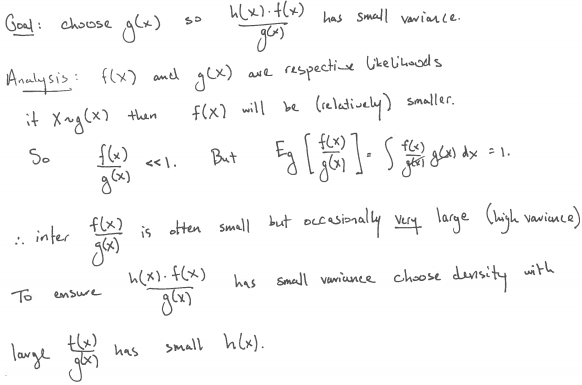 Goal: choose g(x) so h(x)·f(x)/g(x) has small variance.
Analysis: f(x) and g(x) are respective likelihoods
if X~g(x) then f(x) will be (relatively) smaller.
So f(x)/g(x) <<1. But Eg[f(x)/g(x)] = ∫ f(x)/g(x) g(x) dx = 1.
∴ infer f(x)/g(x) is often small but occasionally very large (high variance)
To ensure h(x)·f(x)/g(x) has small variance choose density with
large f(x)/g(x) has small h(x).